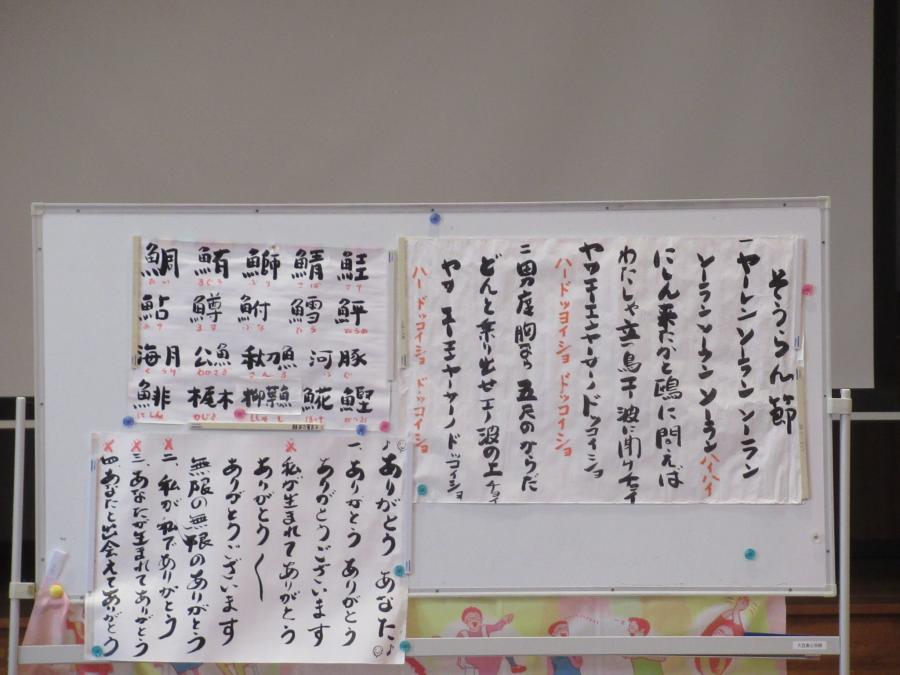 そうらん節
一 ヤーレン ソーラン ソーラン
ソーラン ソーラン ソーラン ハイハイ
にしん来たかと 鴎に問えば
わたしゃ立つ鳥 波に聞けチョイ
ハードッコイショ ドッコイショ
二 男度胸なら 五尺のからだ
どんと乗り出せ 波の上チョイ
ハードッコイショ ドッコイショ
鯛 鮪 鰤 鯖 鮭
たい まぐろ ぶり さば さけ
鮎 鱒 鮒 鱈 鮃
あゆ ます ふな たら ひらめ
海月 公魚 秋刀魚 河豚
くらげ わかさぎ さんま ふぐ
鯡 梶木 𩸽 鰹
にしん かじき ししゃも ほっけ かつお
♪ありがとう あなた♪
一、ありがとう ありがとう
ありがとうございます
私が生まれてありがとう
ありがとう〜
ありがとうございます
無限の無限のありがとう
二、私が私でありがとう
三、あなたが生まれてありがとう
四、あなたと出会えてありがとう